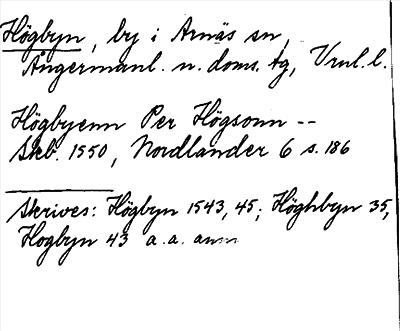 Högbyn, by i Arnäs sn,
Ångermanl. n. doms. tg, Vrnl. l.
Högbyenn Per Högsonn --
Skb. 1550, Nordlander 6 s. 186
Skrives: Högbyn 1543, 45; Höghbyn 35,
Hogbyn 43 a.a. anm